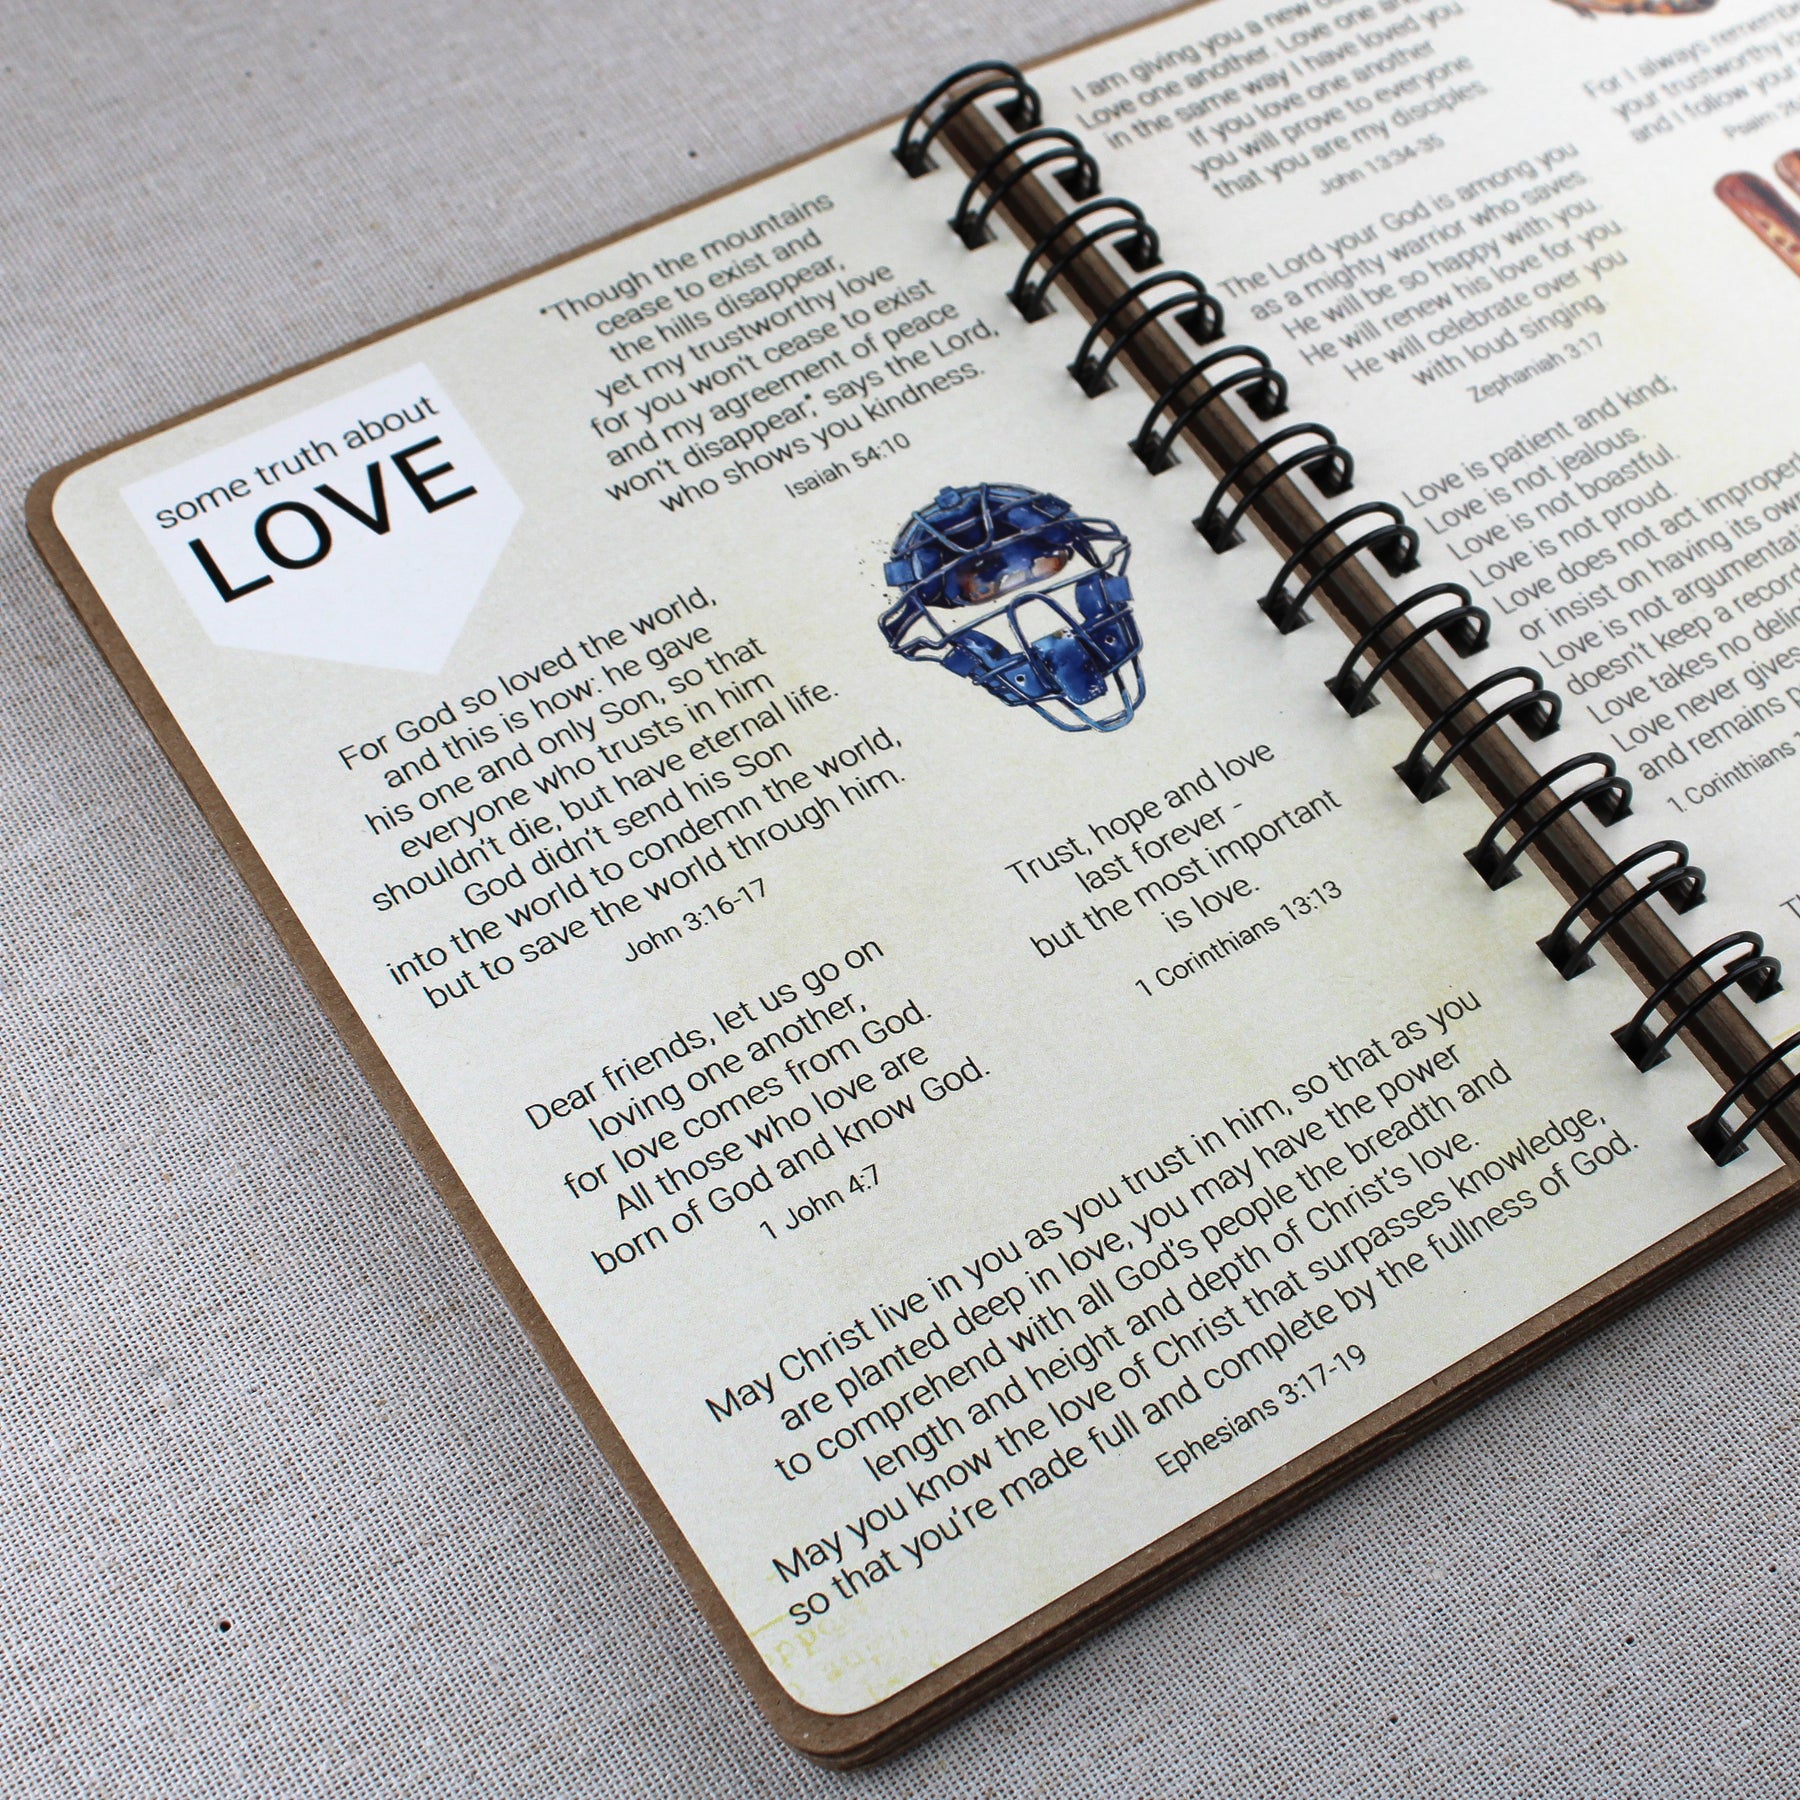 some truth about
LOVE
For God so loved the world,
and this is how: he gave
his one and only Son, so that
everyone who trusts in him
shouldn't die, but have eternal life.
God didn't send his Son
into the world to condemn the world,
but to save the world through him.
John 3:16-17
Dear friends, let us go on
loving one another,
for love comes from God.
All those who love are
born of God and know God.
1 John 4:7
"Though the mountains
cease to exist and
the hills disappear,
yet my trustworthy love
for you won't cease to exist
and my agreement of peace
won't disappear," says the Lord,
who shows you kindness.
Isaiah 54:10
Trust, hope and love
last forever -
but the most important
is love.
1 Corinthians 13:13
May Christ live in you as you trust in him, so that as you
are planted deep in love, you may have the power
to comprehend with all God's people the breadth and
length and height and depth of Christ's love.
May you know the love of Christ that surpasses knowledge,
so that you're made full and complete by the fullness of God.
Ephesians 3:17-19
I am giving you a new
Love one another. Love one
in the same way I have loved you
If you love one another
you will prove to everyone
that you are my disciples.
John 13:34-35
The Lord your God is among you
as a mighty warrior who saves.
He will be so happy with you.
He will renew his love for you.
He will celebrate over you
with loud singing.
Zephaniah 3:17
Love is patient and kind;
Love is not jealous.
Love is not boastful.
Love is not proud.
Love does not act improperl
or insist on having its own
Love is not argumentati
doesn't keep a record
Love takes no delig
Love never gives
and remains p
1 Corinthians 1
For I always remembe
your trustworthy lo
and I follow your
Psalm 26